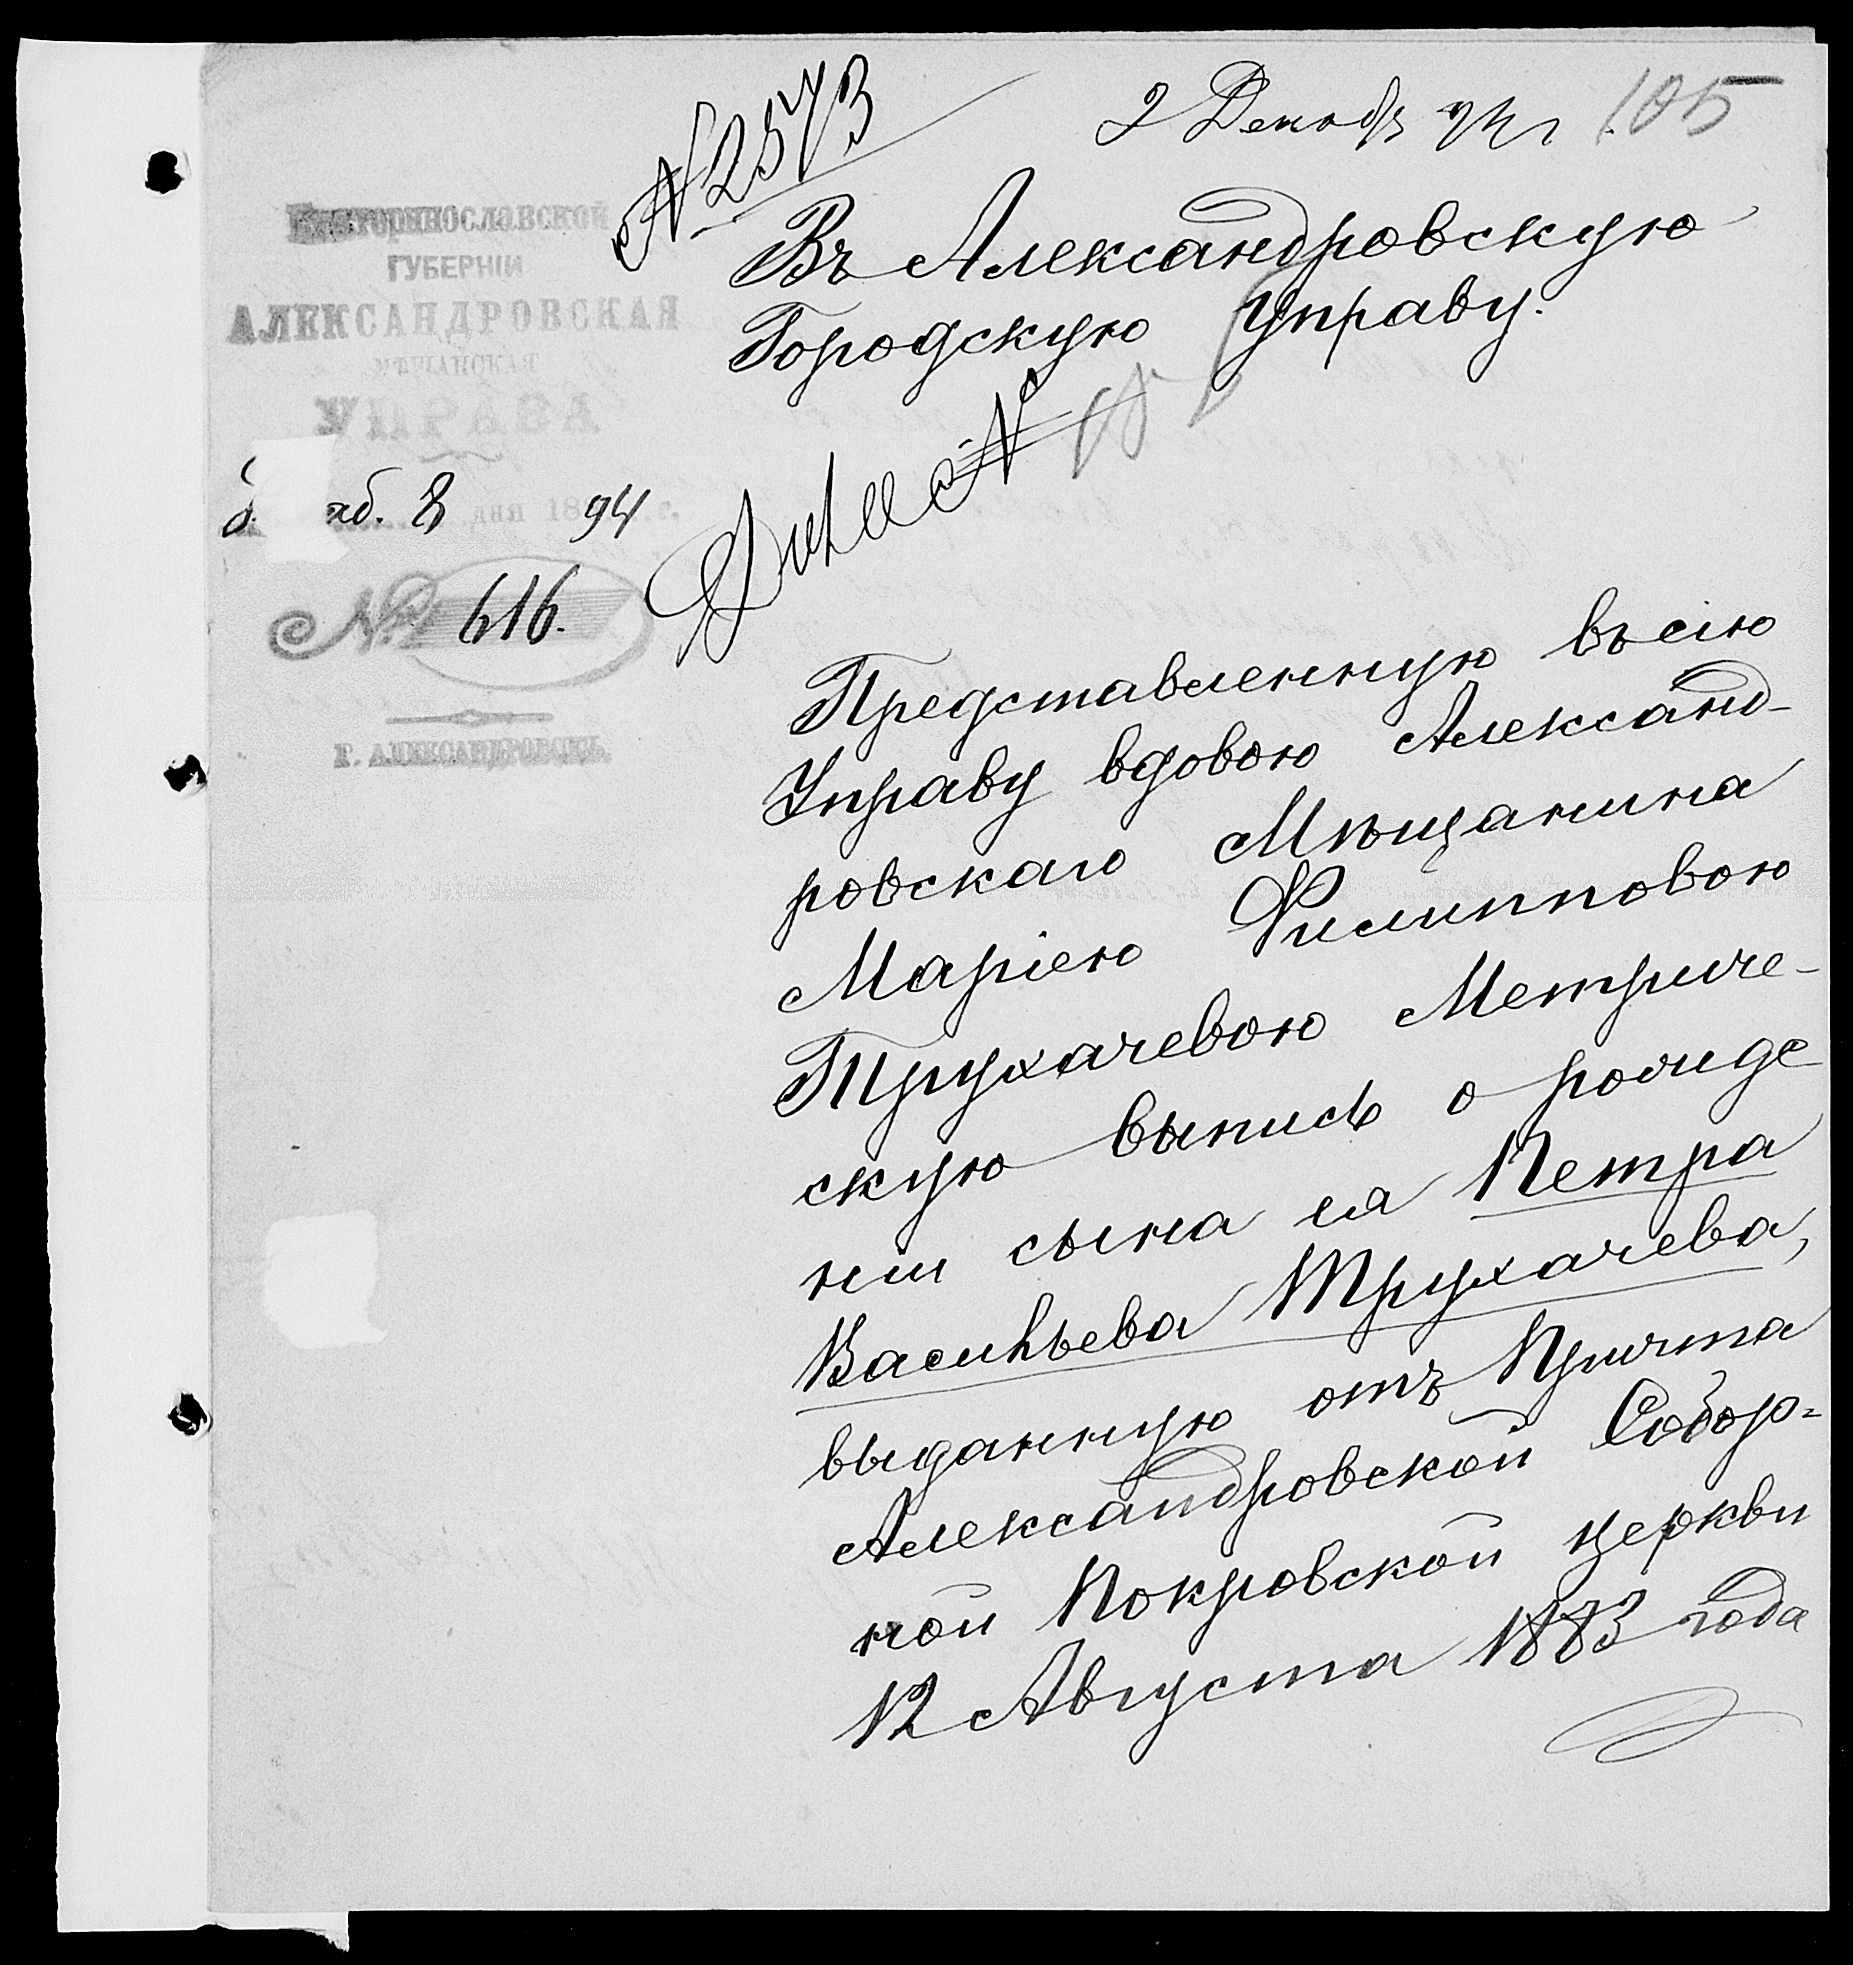 № 2573
2 Декабр 94 г 105
Екатеринославской
ГУБЕРНІИ
АЛЕКСАНДРОВСКАЯ
МѢЩАНСКАЯ
УПРАВА
8 дня 1894 г.
№ 616.
Г. АЛЕКСАНДРОВСКЪ.
Въ Александровскую
Городскую Управу.
№
Представленную въ сію
Управу вдовою Александ-
ровскаго Мѣщанина
Маріею Филипповою
Трухачевою Метриче-
скую выпись о рожде
ніи сына ея Петра
Васильева Трухачева,
выданную отъ Причта
Александровской Собор-
ной Покровской церкви
12 Августа 1883 года